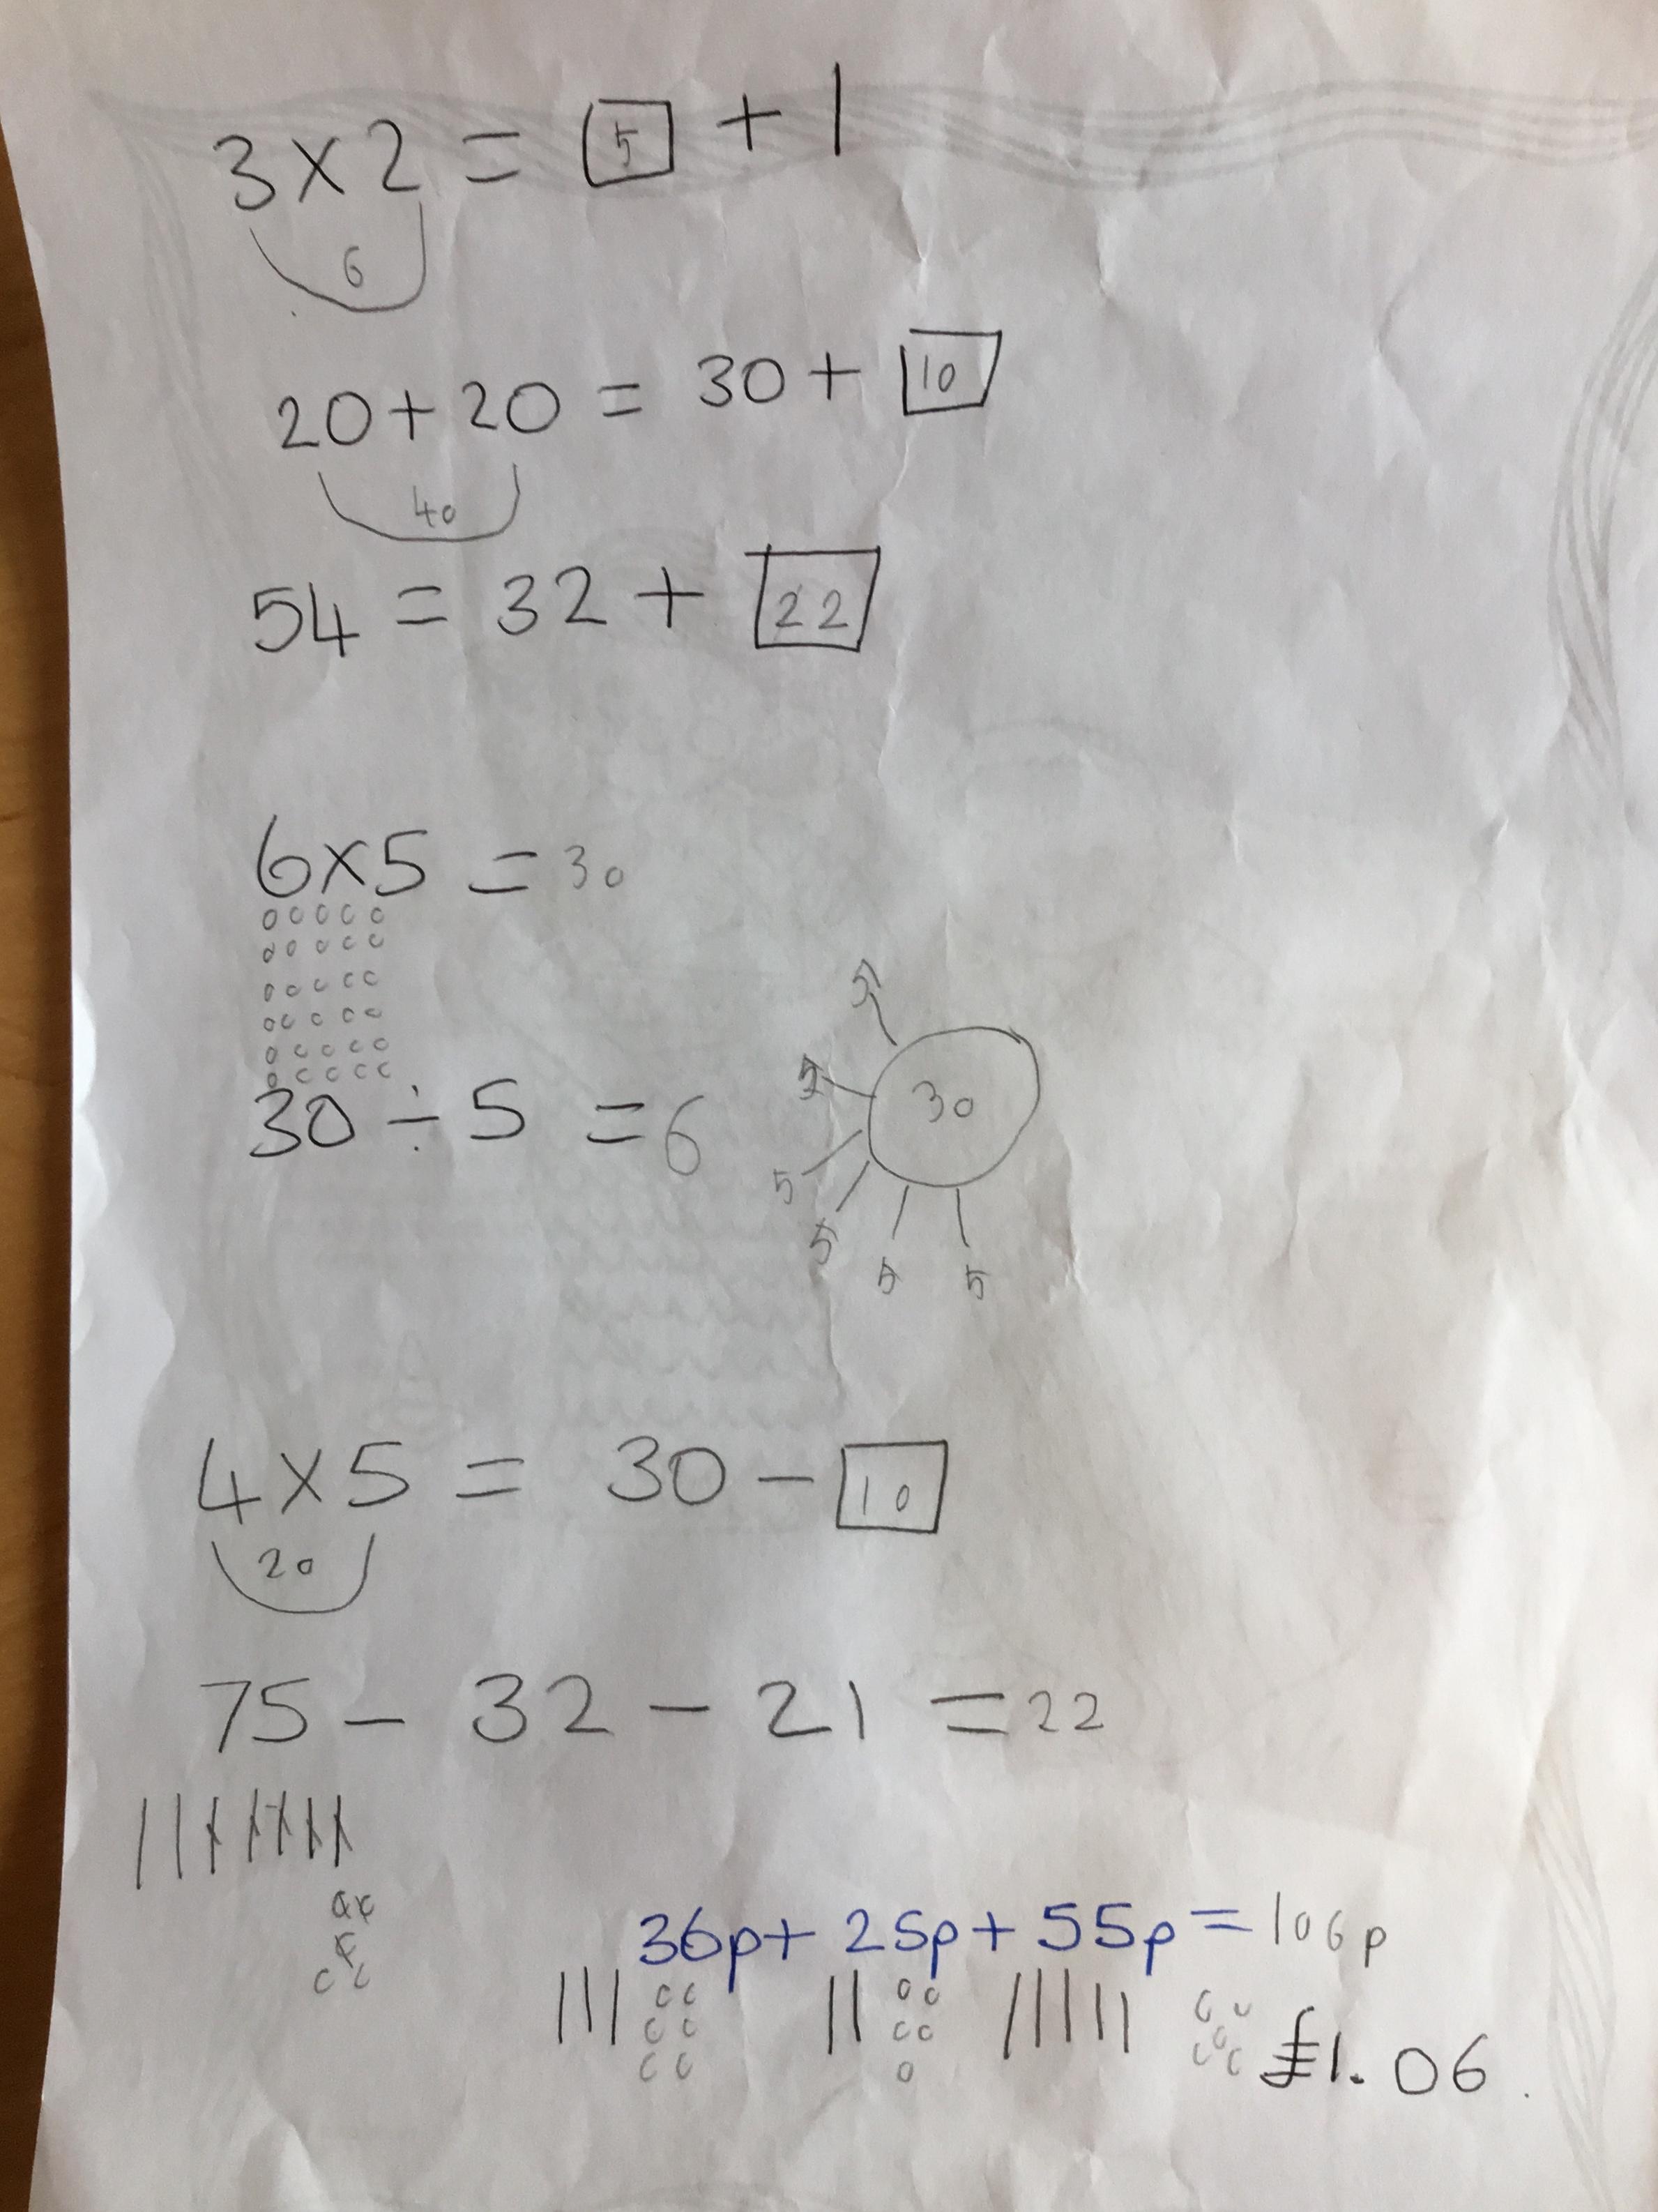 3 x 2 = 5 + 1
6
20 + 20 = 30 + 10
40
54 = 32 + 22
6 x 5 = 30
30 ÷ 5 = 6
30
5
5
5
5
5
5
4 x 5 = 30 - 10
20
75 - 32 - 21 = 22
36p + 25p + 55p = 106p
£1.06